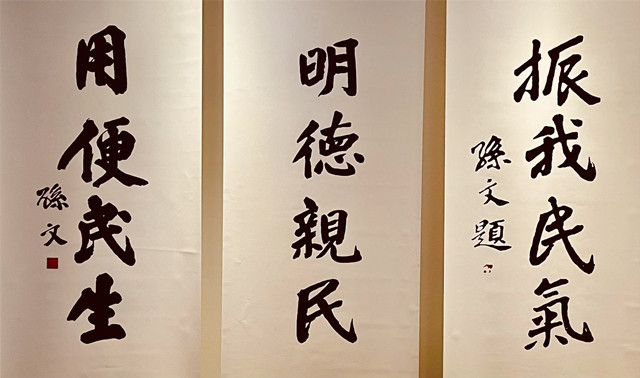 振我民氣
孫文題
明德親民
用便民生
孫文